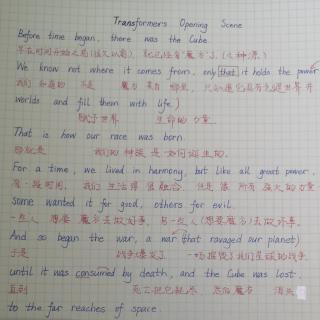 Transformers Opening Scene
Before time began, there was the Cube.
早在时间开始之前(很久以前), 就已经有"魔方"了。
We know not where it comes from, only that it holds the power
我们 知道的 不是 魔方 来自 哪里, 只知道它具有
worlds and fill them with life.)
赋予世界 生命的 力量.
That is how our race was born.
那就是 我们的 种族 是如何诞生的.
For a time, we lived in harmony, but like all great power,
有一段时间, 我们 生活得 很 融洽. 但是 像 所有 强大的 力量
Some wanted it for good, others for evil.
一些人 想要 魔方去做好事, 另一些人(想要魔方)去做坏事.
And so began the war, a war that ravaged our planet)
于是 战争爆发了 一场摧毁了我们星球的战争.
until it was consumed by death, and the Cube was lost
直到 死亡把它耗尽 然后魔方 消失
to the far reaches of space.